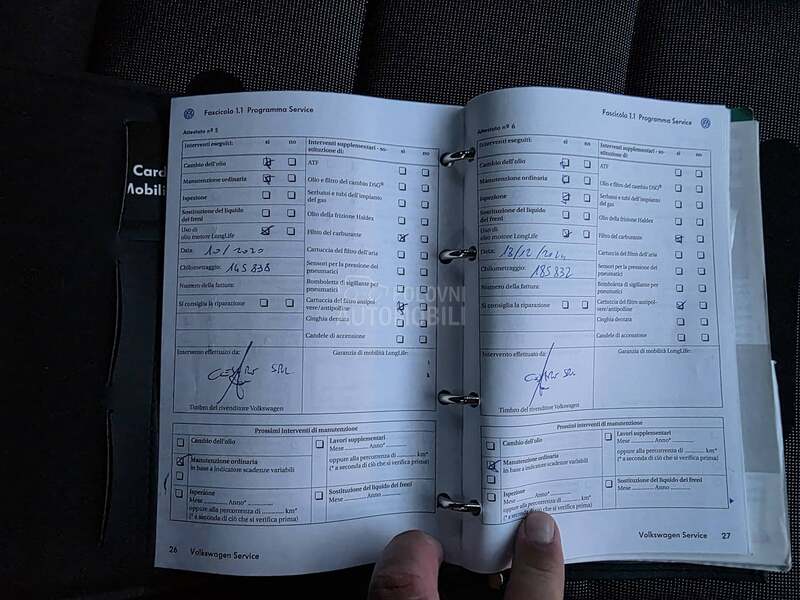 Card
Mobili
Fascicolo 1.1 Programma Service
Attestato nº 5
Interventi eseguiti: sì no
Interventi supplementari - so-
stituzione di: sì no
Cambio dell'olio
ATF
Manutenzione ordinaria
Olio e filtro del cambio DSG®
Ispezione
Serbatoi e tubi dell'impianto
del gas
Sostituzione del liquido
dei freni
Olio della frizione Haldex
Uso di
olio motore LongLife
Filtro del carburante
Data: 10/2020
Cartuccia del filtro dell'aria
Chilometraggio: 145838
Sensori per la pressione dei
pneumatici
Numero della fattura:
Bomboletta di sigillante per
pneumatici
Si consiglia la riparazione
Cartuccia del filtro antipol-
vere/antipolline
Cinghia dentata
Candele di accensione
Intervento effettuato da:
Garanzia di mobilità LongLife:
SRL
Timbro del rivenditore Volkswagen
Prossimi interventi di manutenzione
Cambio dell'olio
Manutenzione ordinaria
In base a indicatore scadenze variabili
Ispezione
Mese ............ Anno* ............
oppure alla percorrenza di ............ km*
(* a seconda di ciò che si verifica prima)
Lavori supplementari
Mese ............ Anno* ............
oppure alla percorrenza di ............ km*
(* a seconda di ciò che si verifica prima)
Sostituzione del liquido dei freni
Mese ............ Anno ............
26 Volkswagen Service
Fascicolo 1.1 Programma Service
Attestato nº 6
Interventi eseguiti: sì no
Interventi supplementari - so-
stituzione di: sì no
Cambio dell'olio
ATF
Manutenzione ordinaria
Olio e filtro del cambio DSG®
Ispezione
Serbatoi e tubi dell'impianto
del gas
Sostituzione del liquido
dei freni
Olio della frizione Haldex
Uso di
olio motore LongLife
Filtro del carburante
Data:
Cartuccia del filtro dell'aria
Chilometraggio: 185832
Sensori per la pressione dei
pneumatici
Numero della fattura:
Bomboletta di sigillante per
pneumatici
Si consiglia la riparazione
Cartuccia del filtro antipol-
vere/antipolline
Cinghia dentata
Candele di accensione
Intervento effettuato da:
Garanzia di mobilità LongLife:
Timbro del rivenditore Volkswagen
Prossimi interventi di manutenzione
Cambio dell'olio
Manutenzione ordinaria
In base a indicatore scadenze variabili
Ispezione
Mese ............ Anno* ............
oppure alla percorrenza di ............ km*
(* a seconda di ciò che si verifica prima)
Lavori supplementari
Mese ............ Anno* ............
oppure alla percorrenza di ............ km*
(* a seconda di ciò che si verifica prima)
Sostituzione del liquido dei freni
Mese ............ Anno ............
Volkswagen Service 27
POLOVNI
AUTOMOBILI